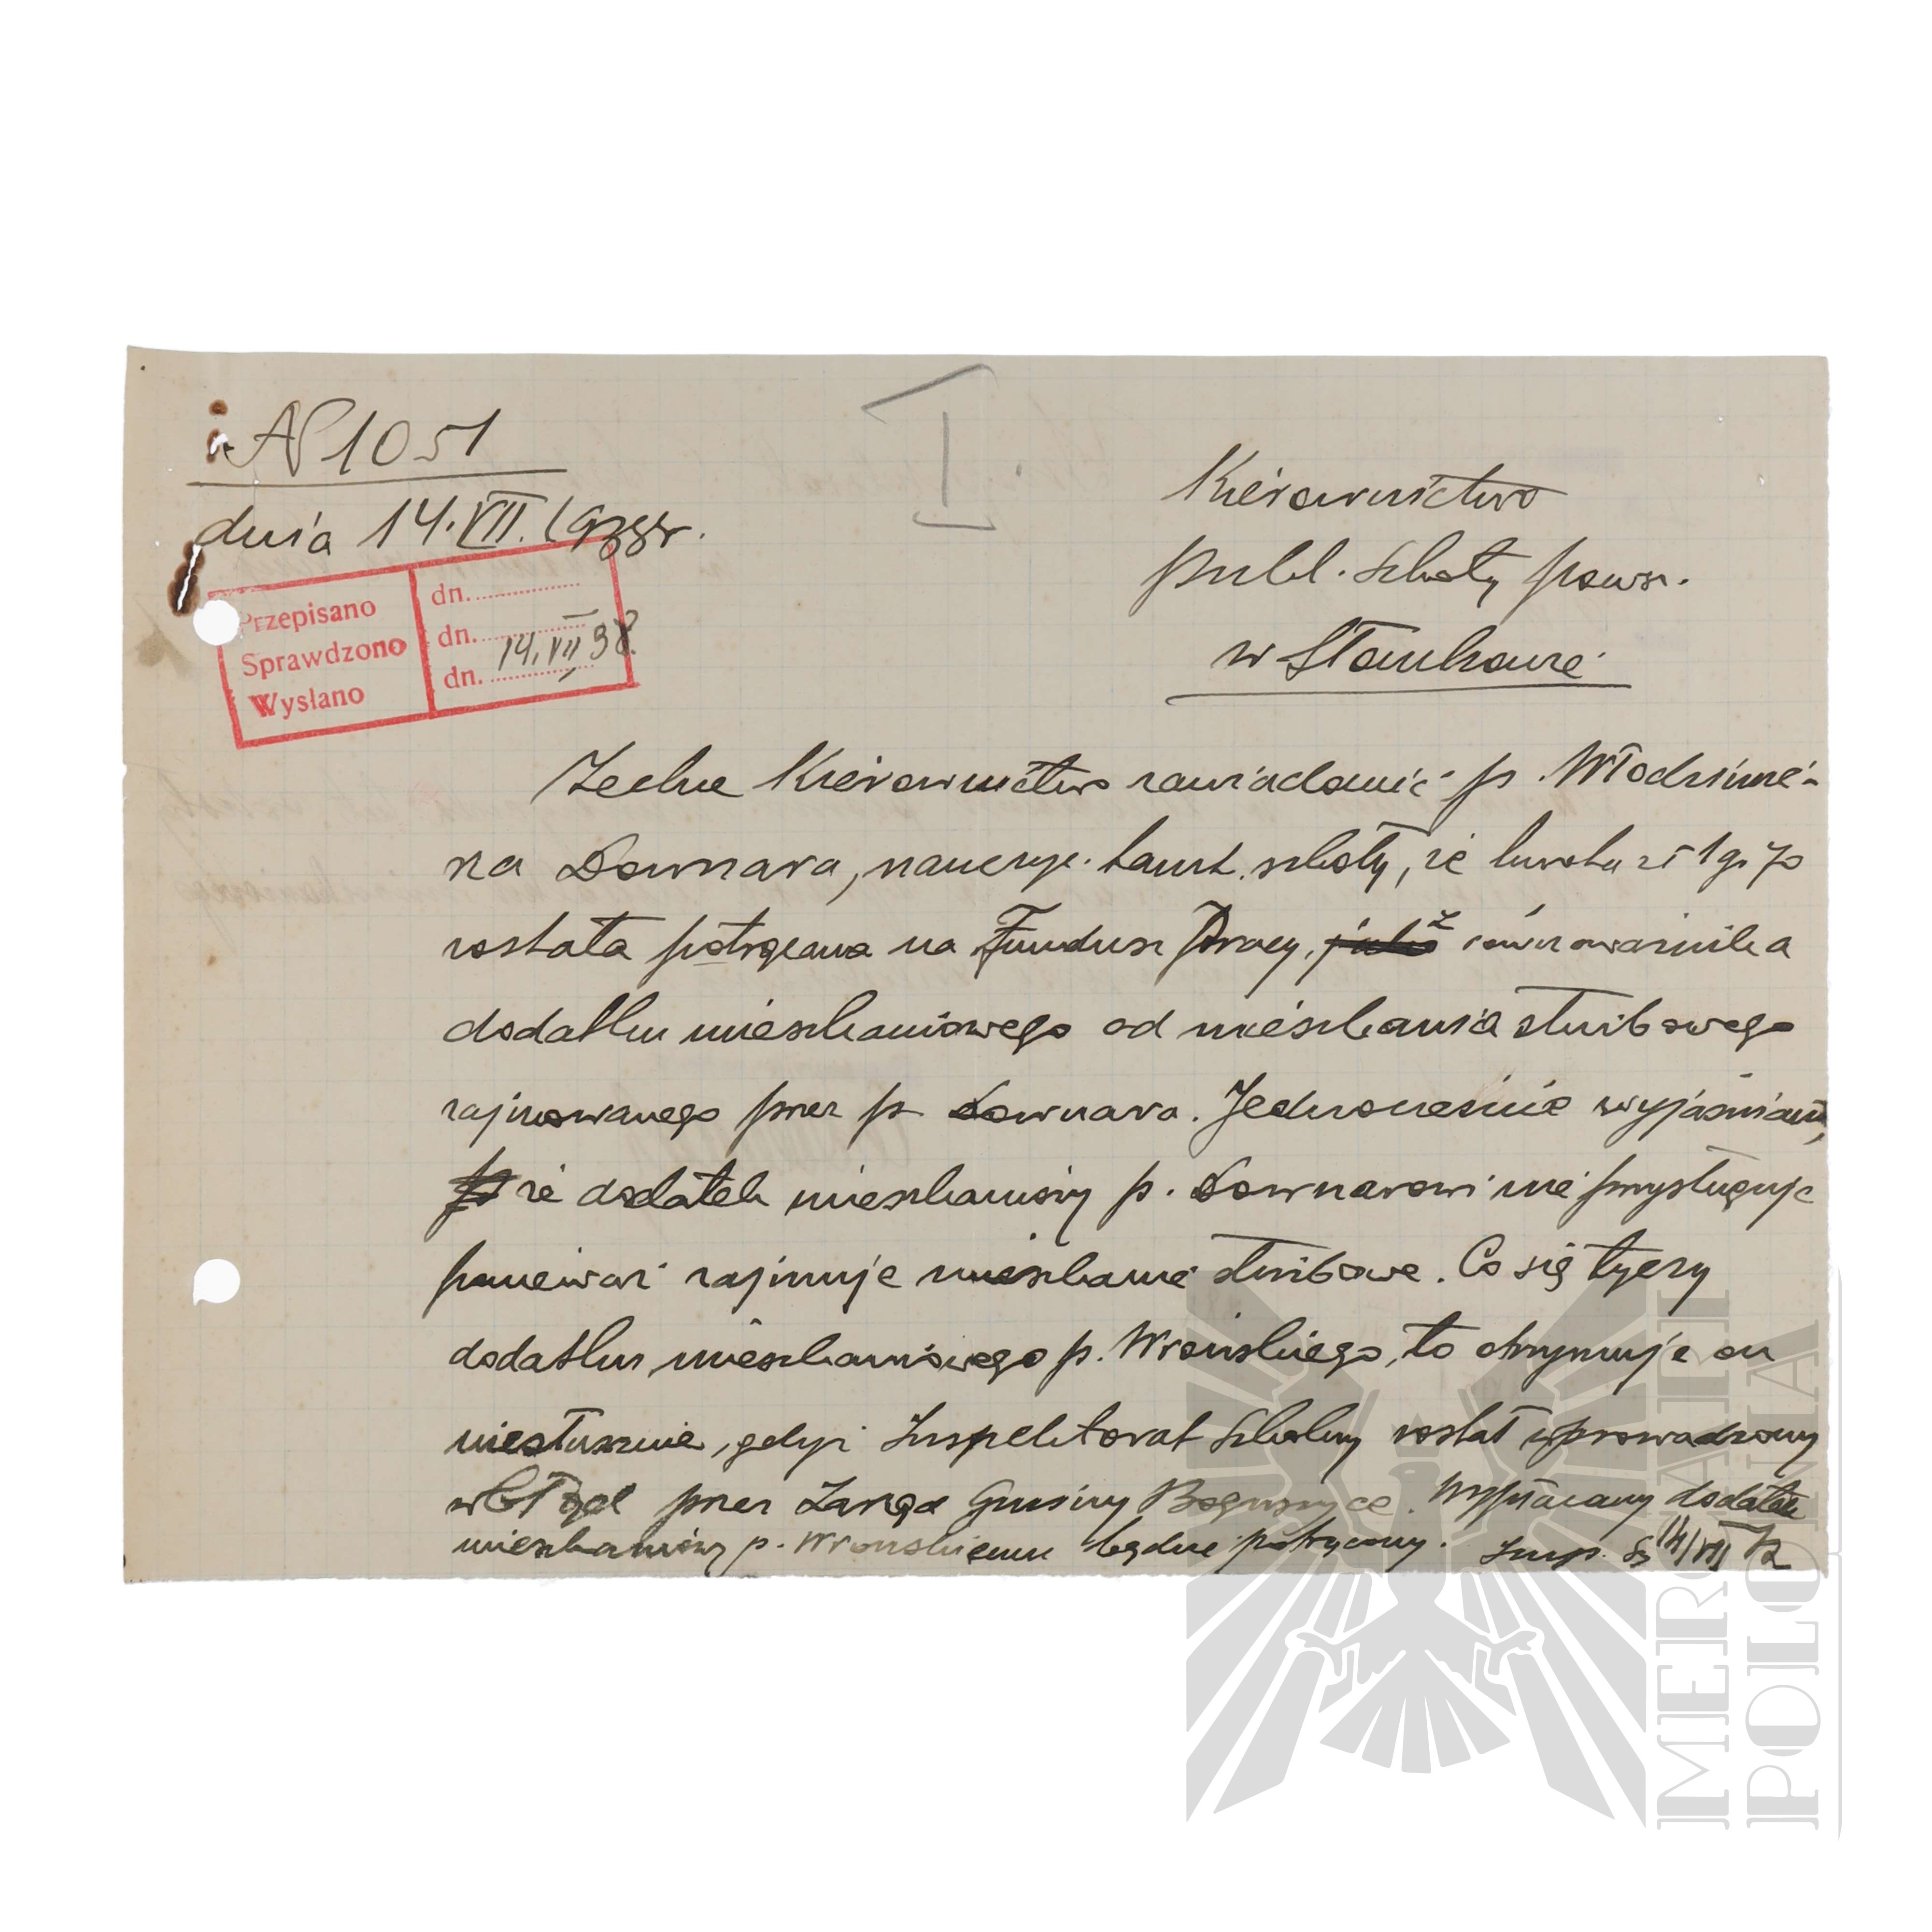 № 1051
dnia 14.VII.1938r.
I.
Przepisano dn.
Sprawdzono dn.
Wysłano dn. 14.VII.38.
Kierownictwo
publ. szkoły powsz.
w
Zechce Kierownictwo zawiadomić p. Włodzimie-
rza Downara, nauczyc. tamt. szkoły, że kwota zł 1 gr 70
została potrącona na Fundusz Pracy, z równoważnika
dodatku mieszkaniowego od mieszkania służbowego
zajmowanego przez p Downara. Jednocześnie wyjaśniam,
że dodatek mieszkaniowy p. Downarowi nie przysługuje
ponieważ zajmuje mieszkanie służbowe. Co się tyczy
dodatku mieszkaniowego p. Wrońskiego, to otrzymuje on
niesłusznie, gdyż Inspektorat Szkolny został wprowadzony
w błąd przez Zarząd Gminy Boguszyce. Wypłacany dodatek
mieszkaniowy p. Wrońskiemu będzie potrącony. Insp. 14/VII
MEMORABILIA
POLONIA